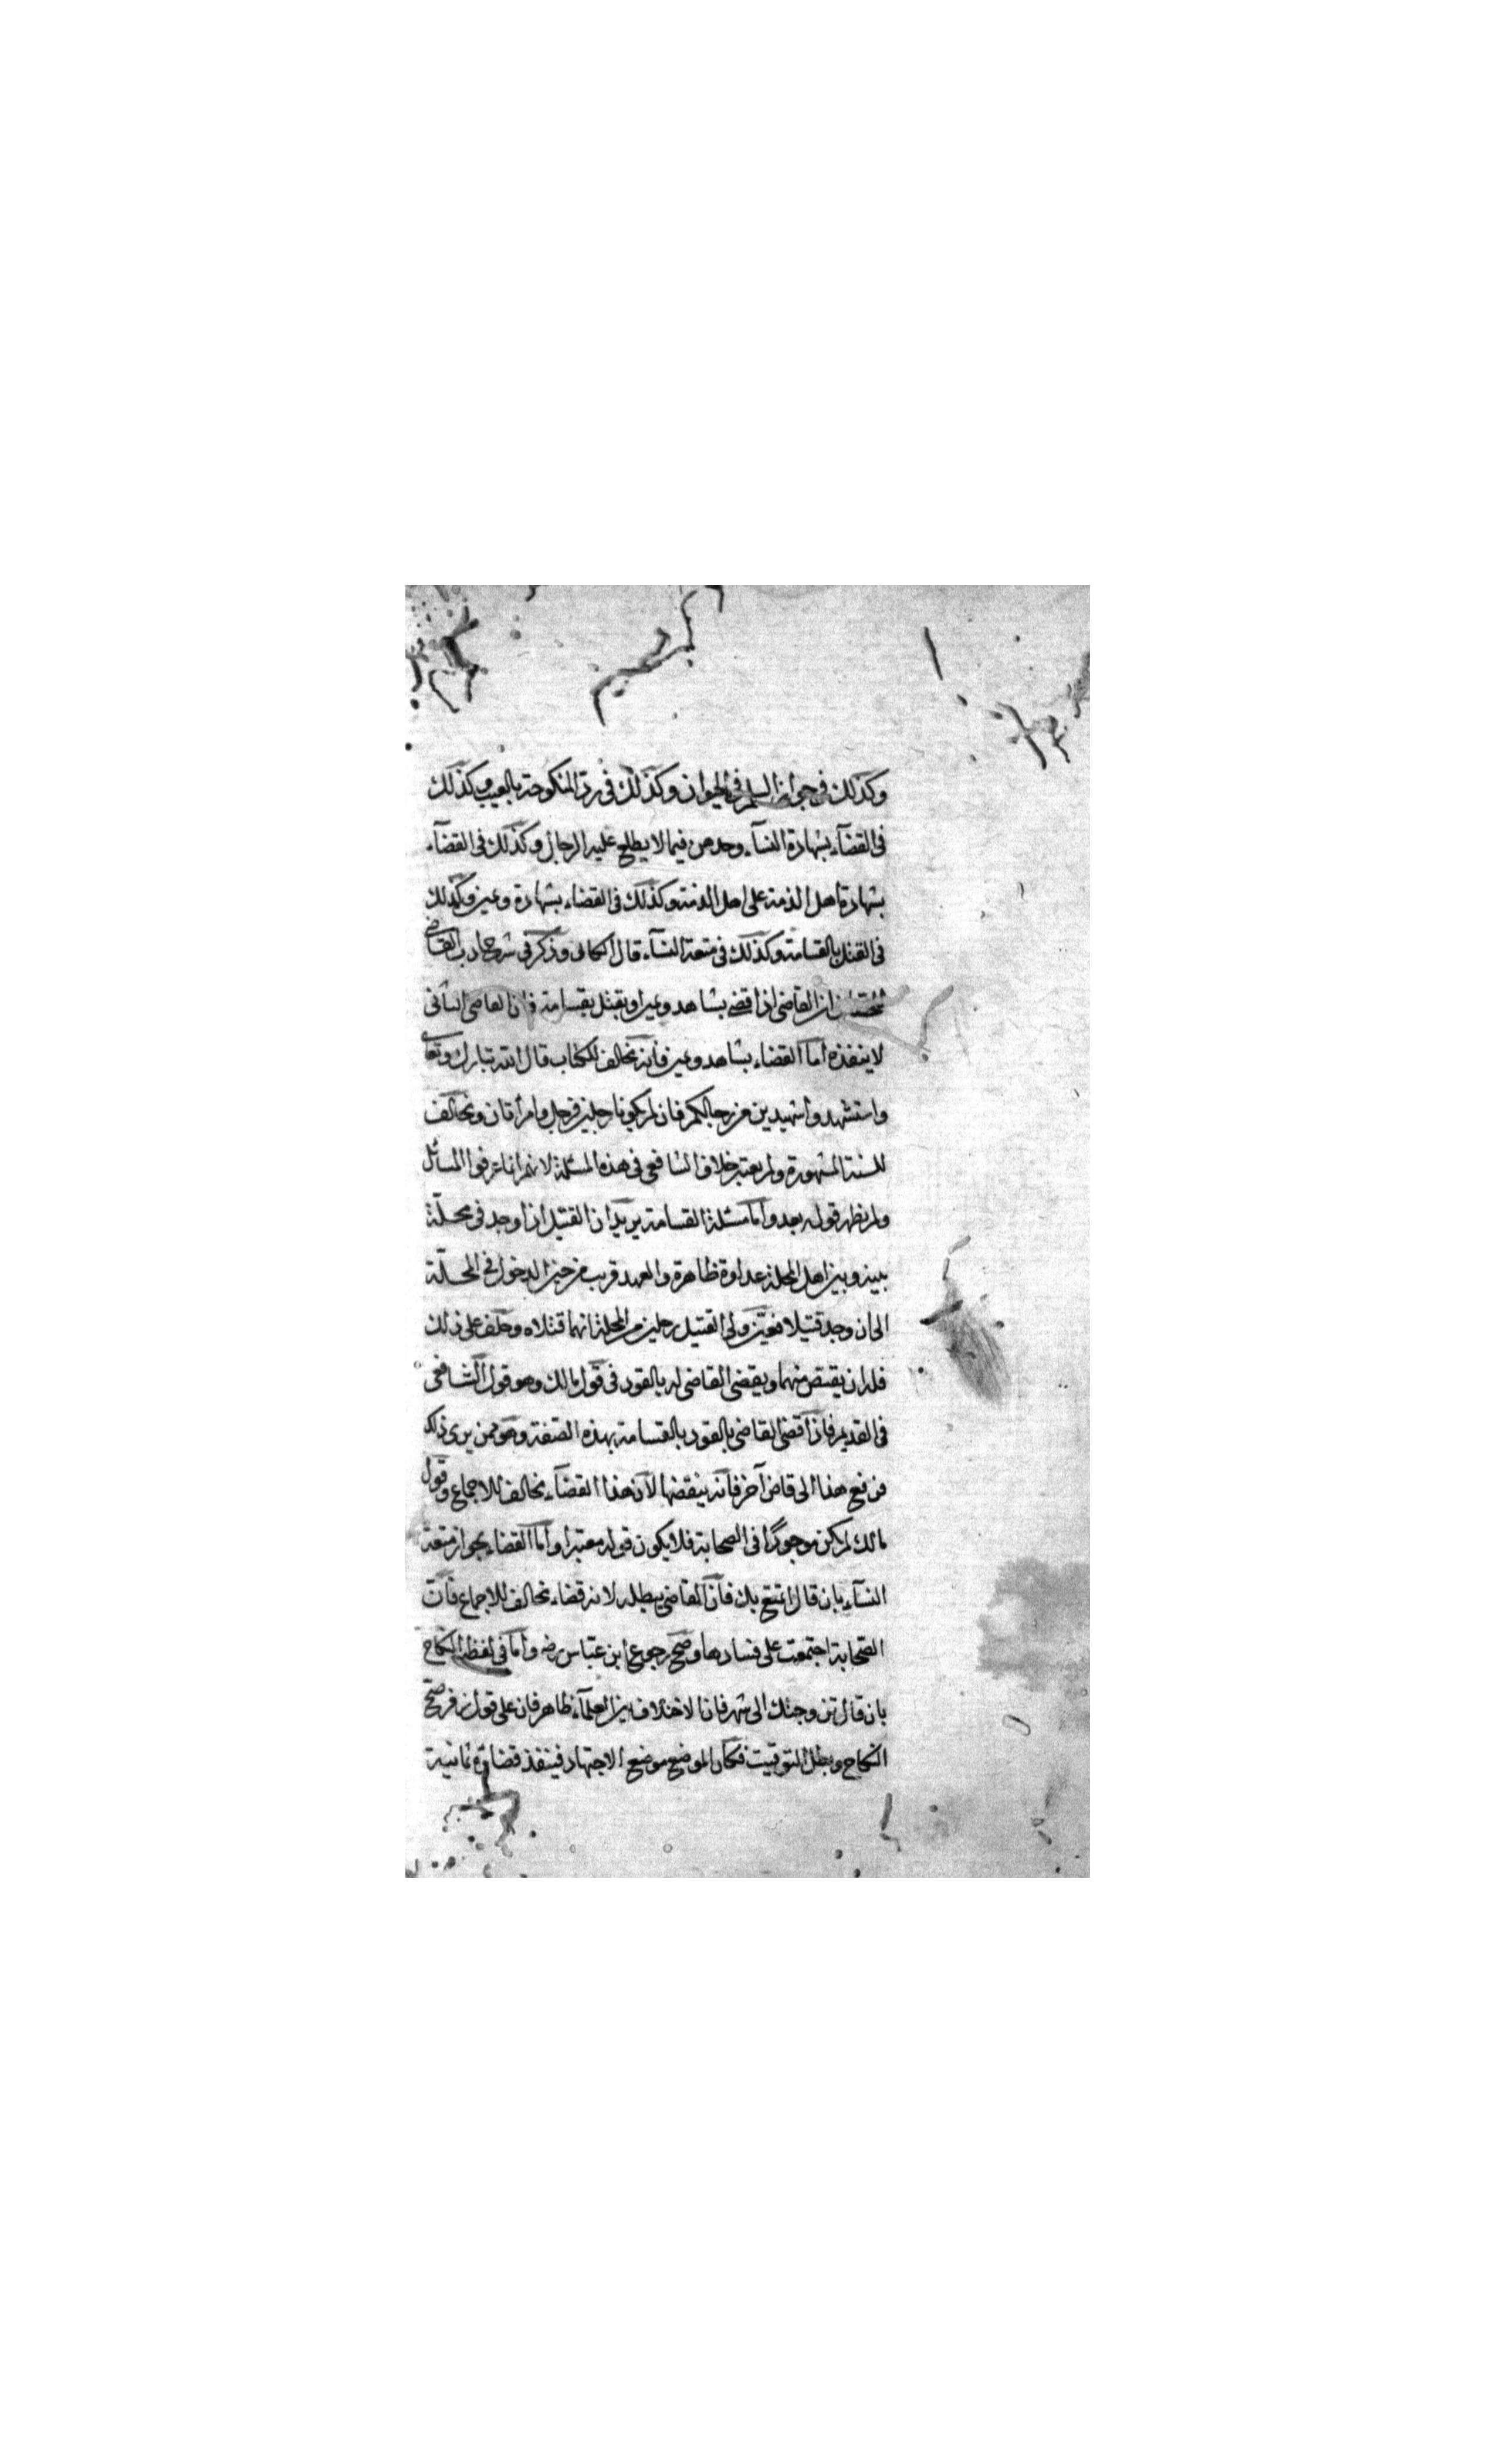 وكذلك في جواز السلم في الحيوان وكذلك في رد المنكوحة بالعيب وكذلك
في القضآء بشهادة النسآء وحدهن فيما لا يطلع عليه الرجال وكذلك في القضآء
بشهادة اهل الذمة على اهل الذمة وكذلك في القضاء بشهادة ويمين وكذلك
في القتل بالقسامة وكذلك في متعة النسآء قال وذكر في شرح ادب القاضي
ان القاضي اذا قضى بشاهد ويمين او بقتل بقسامة فان القاضي الثاني
لا ينفذه أما القضاء بشاهد ويمين فأنه مخالف للكتاب قال الله تبارك وتعالى
واستشهدوا شهيدين من رجالكم فان لم يكونا رجلين فرجل وامرأتان ومخالف
للسنة المشهورة ولم يعتبر خلاف الشافعي في هذه المسئلة لانهم انما عرفوا المسائل
ولم يظهر قوله بعد وأما مسئلة القسامة يريد ان القتيل اذا وجد في محلة
بينه وبين اهل المحلة عداوة ظاهرة والعهد قريب من حين الدخول في المحلة
الى ان وجد قتيلا فعين ولي القتيل رجلين من المحلة انهما قتلاه وحلف على ذلك
فله ان يقتص منهما ويقضي القاضي له بالقود في قول مالك وهو قول الشافعي
في القديم فاذا قضى القاضي بالقود بالقسامة بهذه الصفة وهو ممن يرى ذلك
فرفع هذا الى قاض آخر فأنه ينقضها لأن هذا القضآء مخالف للاجماع وقول
مالك لم يكن موجودا في الصحابة فلا يكون قوله معتبرا وأما القضاء بجواز متعة
النسآء بان قال اتمتع بك فأن القاضي يبطله لانه قضاء مخالف للاجماع فأن
الصحابة اجتمعت على فسادها وصح رجوع ابن عباس رضه وأما في لفظه النكاح
بان قال تزوجتك الى شهر فان الاختلاف بين العلمآء ظاهر فان على قول زفر صح
النكاح وبطل التوقيت فكان الموضع موضع الاجتهاد فينفذ قضاؤه ثانية